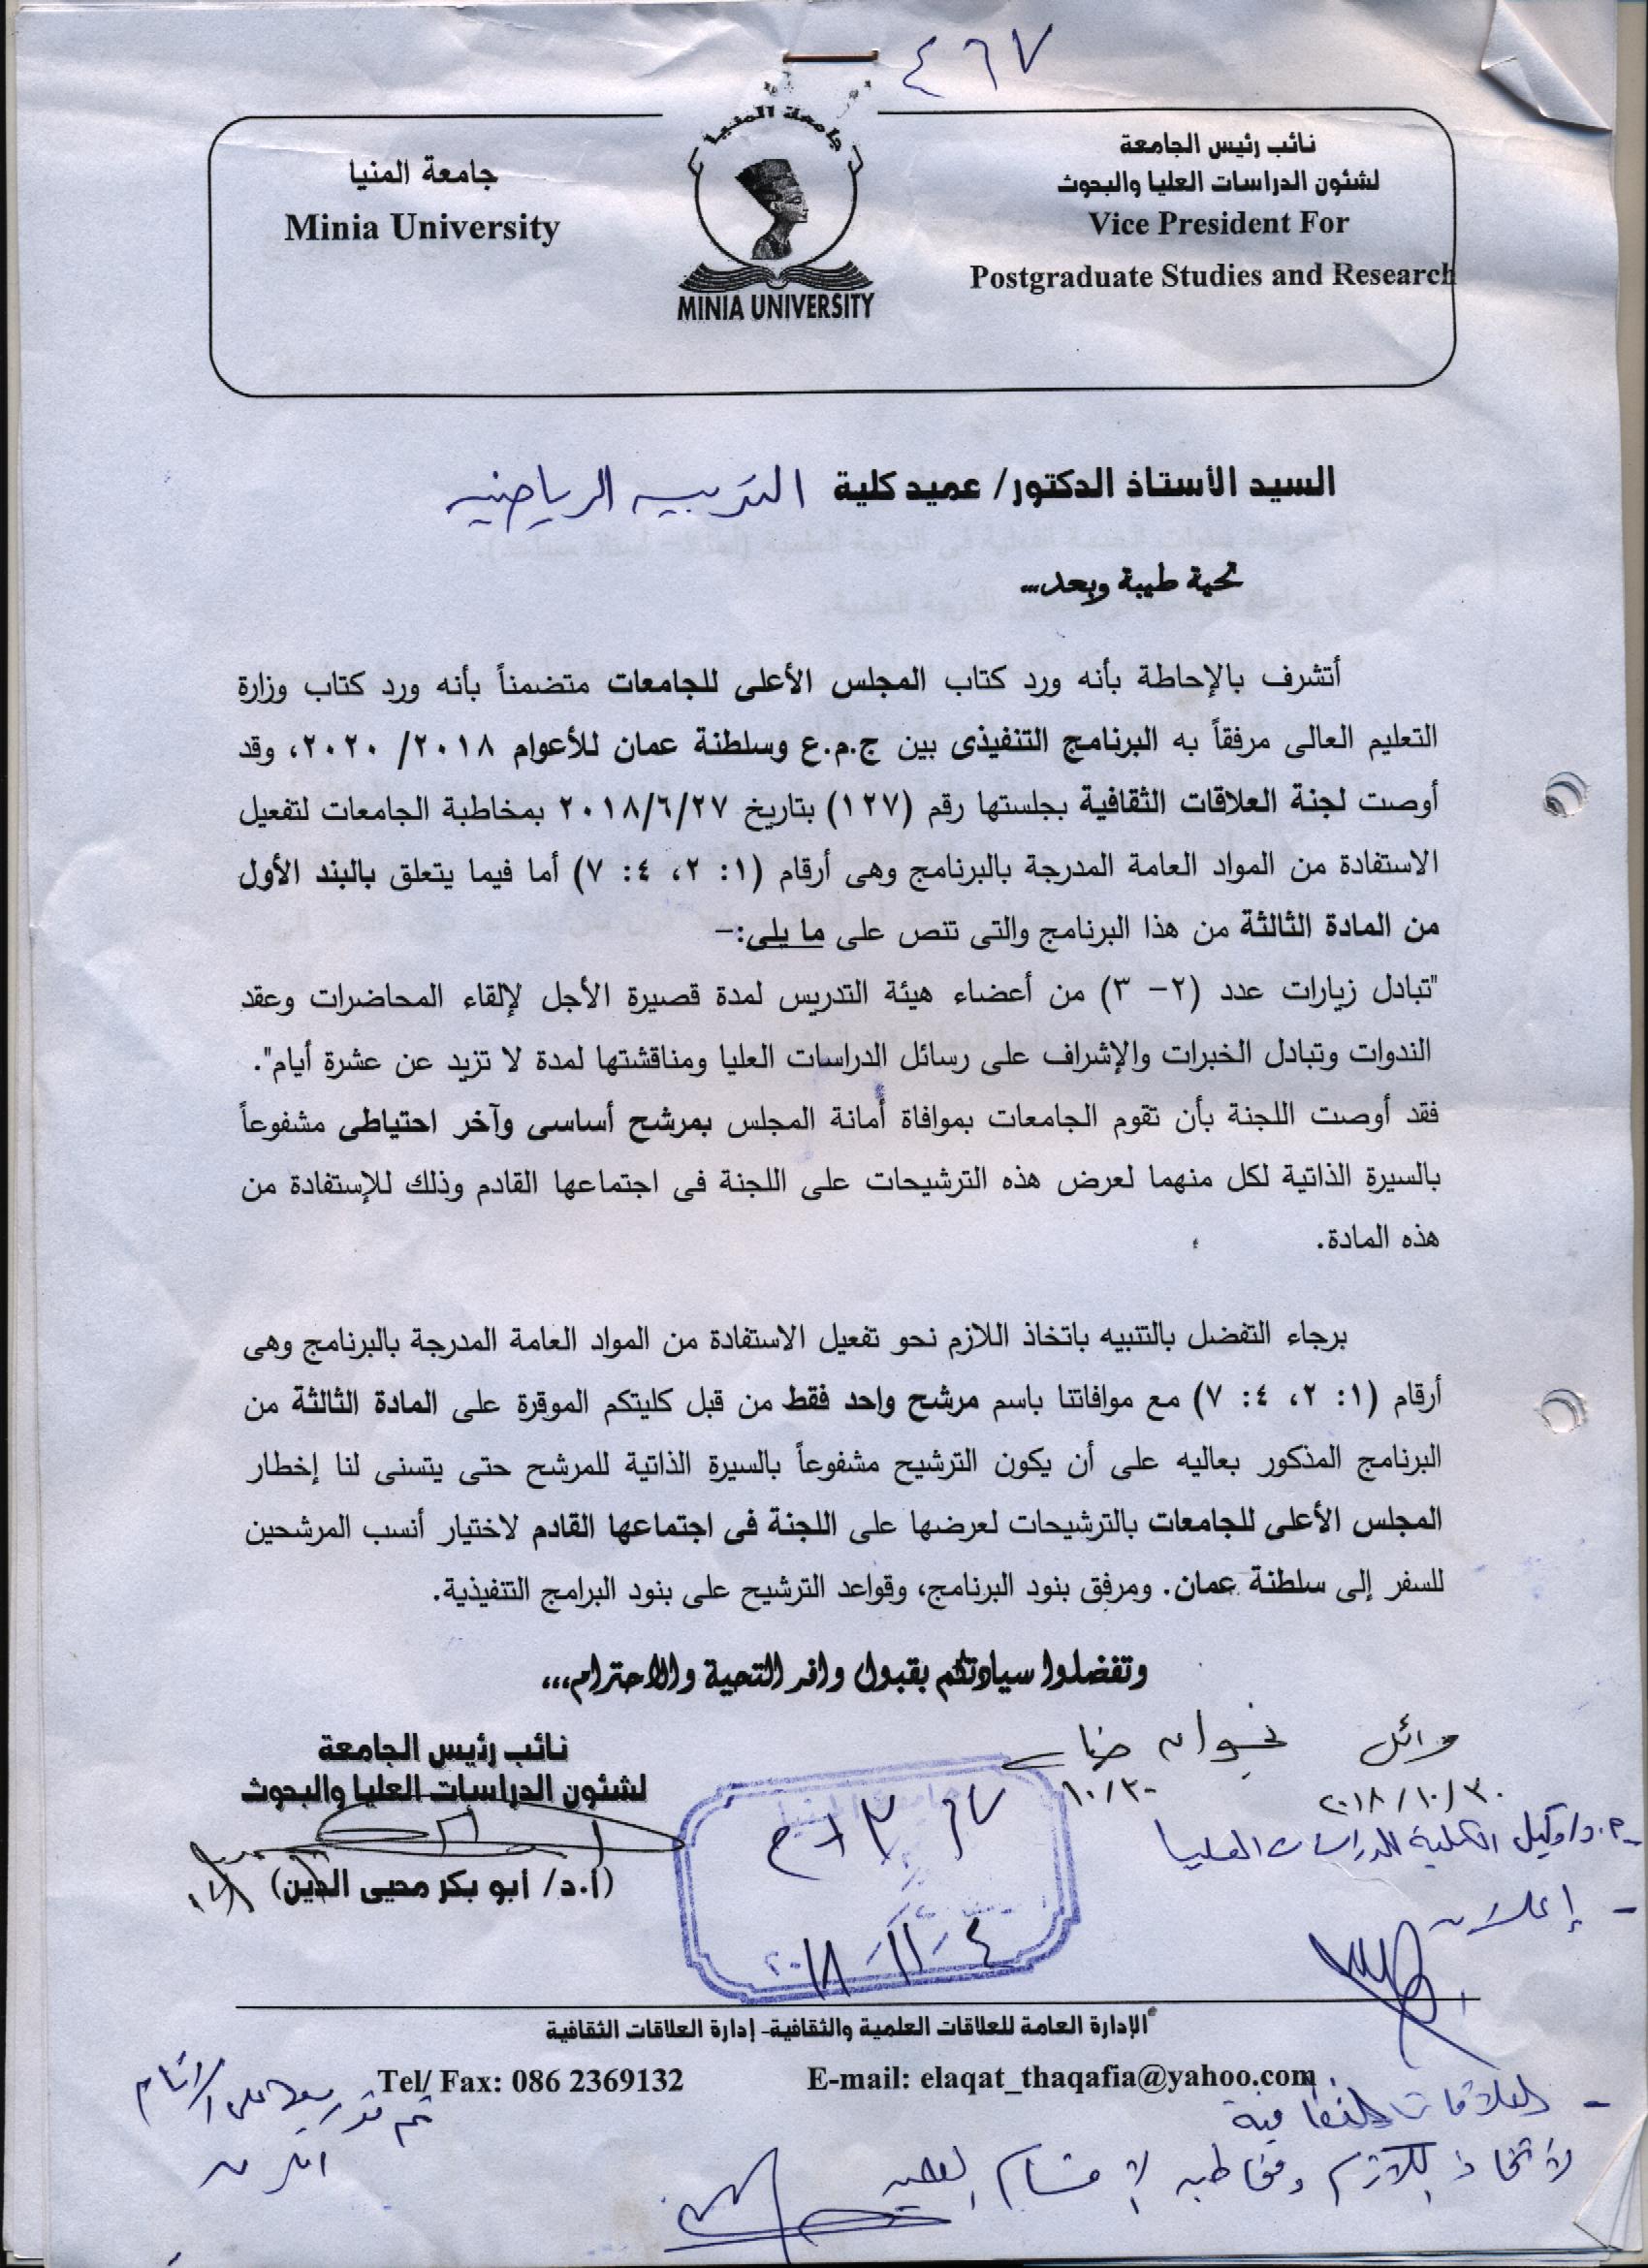 ٤٦٧
جامعة المنيا
نائب رئيس الجامعة
لشئون الدراسات العليا والبحوث
Vice President For
Postgraduate Studies and Research
جامعة المنيا
Minia University
MINIA UNIVERSITY
السيد الأستاذ الدكتور/ عميد كلية التربيه الرياضيه
تحية طيبة وبعد...
أتشرف بالإحاطة بأنه ورد كتاب المجلس الأعلى للجامعات متضمناً بأنه ورد كتاب وزارة
التعليم العالى مرفقاً به البرنامج التنفيذى بين ج.م.ع وسلطنة عمان للأعوام ٢٠١٨/ ٢٠٢٠، وقد
أوصت لجنة العلاقات الثقافية بجلستها رقم (١٢٧) بتاريخ ٢٠١٨/٦/٢٧ بمخاطبة الجامعات لتفعيل
الاستفادة من المواد العامة المدرجة بالبرنامج وهى أرقام (١: ٢، ٤: ٧) أما فيما يتعلق بالبند الأول
من المادة الثالثة من هذا البرنامج والتى تنص على ما يلى:-
"تبادل زيارات عدد (٢- ٣) من أعضاء هيئة التدريس لمدة قصيرة الأجل لإلقاء المحاضرات وعقد
الندوات وتبادل الخبرات والإشراف على رسائل الدراسات العليا ومناقشتها لمدة لا تزيد عن عشرة أيام".
فقد أوصت اللجنة بأن تقوم الجامعات بموافاة أمانة المجلس بمرشح أساسى وآخر احتياطى مشفوعاً
بالسيرة الذاتية لكل منهما لعرض هذه الترشيحات على اللجنة فى اجتماعها القادم وذلك للإستفادة من
هذه المادة.
برجاء التفضل بالتنبيه باتخاذ اللازم نحو تفعيل الاستفادة من المواد العامة المدرجة بالبرنامج وهى
أرقام (١: ٢، ٤: ٧) مع موافاتنا باسم مرشح واحد فقط من قبل كليتكم الموقرة على المادة الثالثة من
البرنامج المذكور بعاليه على أن يكون الترشيح مشفوعاً بالسيرة الذاتية للمرشح حتى يتسنى لنا إخطار
المجلس الأعلى للجامعات بالترشيحات لعرضها على اللجنة فى اجتماعها القادم لاختيار أنسب المرشحين
للسفر إلى سلطنة عمان. ومرفق بنود البرنامج، وقواعد الترشيح على بنود البرامج التنفيذية.
وتفضلوا سيادتكم بقبول وافر التحية والاحترام،،،
وائل
٢٠١٨/١٠/٣٠
١٠/٣٠
نائب رئيس الجامعة
لشئون الدراسات العليا والبحوث
(أ.د/ أبو بكر محيى الدين)
جامعة المنيا
٤ - ١١ - ٢٠١٨
وكيل الكلية للدراسات العليا
- إعلان
الإدارة العامة للعلاقات العلمية والثقافية- إدارة العلاقات الثقافية
Tel/ Fax: 086 2369132 E-mail: elaqat_thaqafia@yahoo.com
- العلاقات الثقافية
لاتخاذ اللازم ومخاطبه الاقسام العلميه